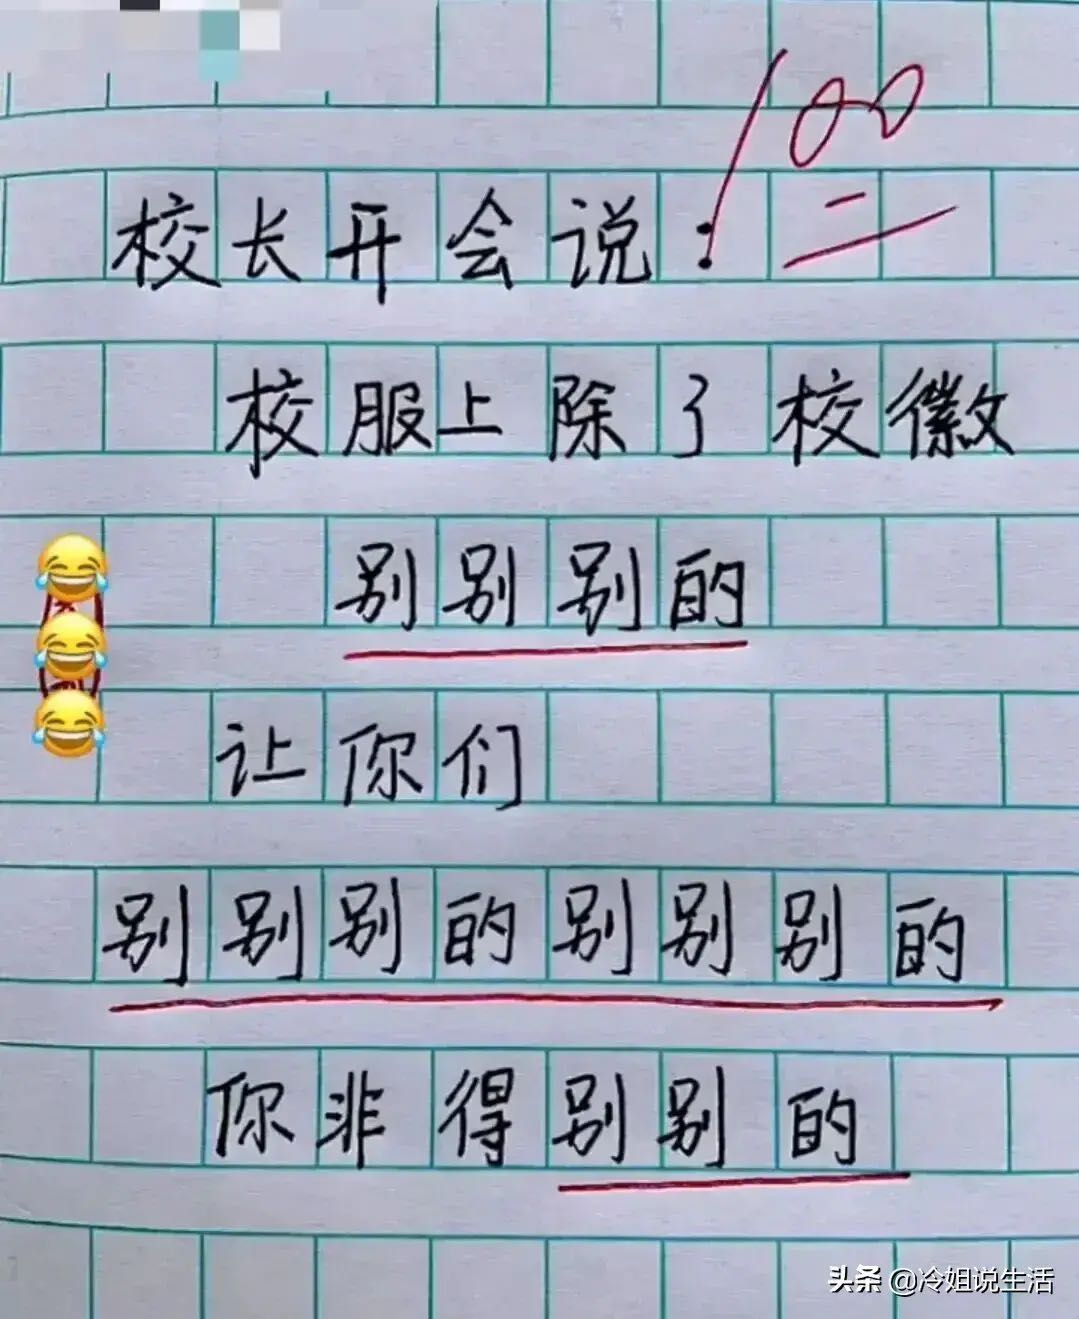 100
校长开会说：
校服上除了校徽
别别别的
让你们
别别别的别别别的
你非得别别的
头条 @冷姐说生活